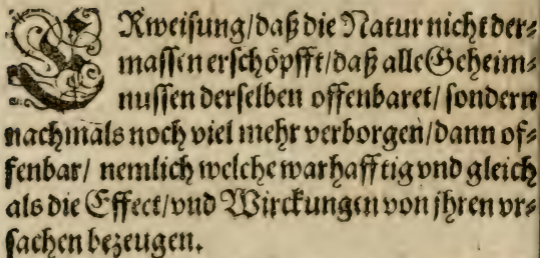 ERweisung/daß die Natur nicht der⸗
massen erschöpfft/daß alle Geheim⸗
nussen derselben offenbaret/ sondern
nachmals noch viel mehr verborgen/dann of⸗
fenbar/ nemlich welche warhafftig vnd gleich
als die Effect/vnd Wirckungen von jhren vr⸗
sachen bezeugen.